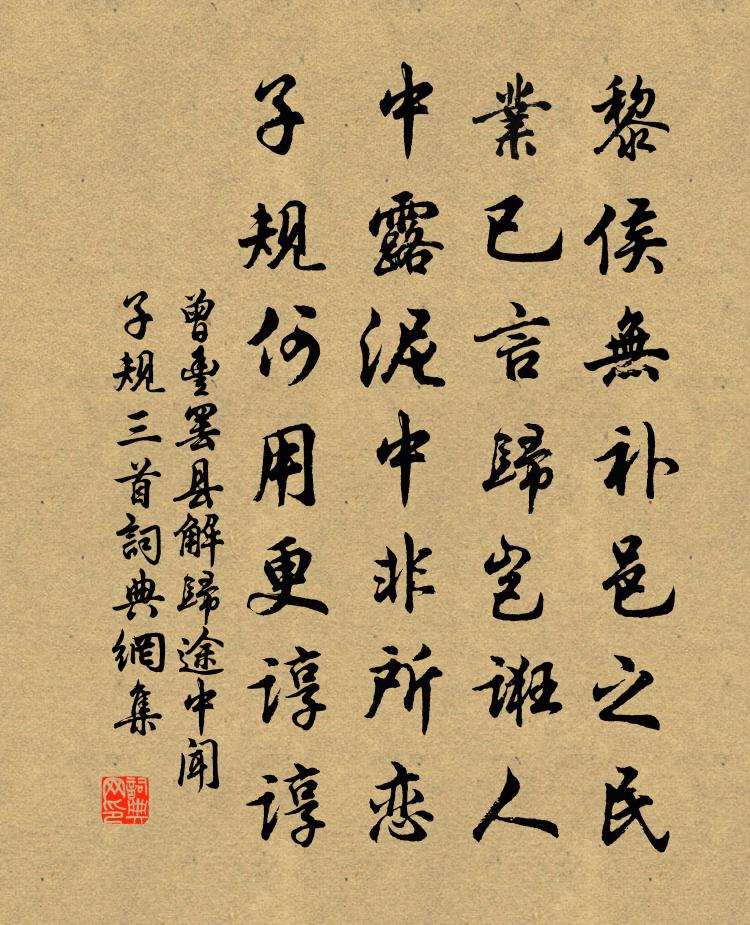 黎侯無补邑之民
業已言歸岂诳人
中露泥中非所恋
子规何用更谆谆
曾豊罢县解歸途中闻
子规三首詞典網集
詞典网印